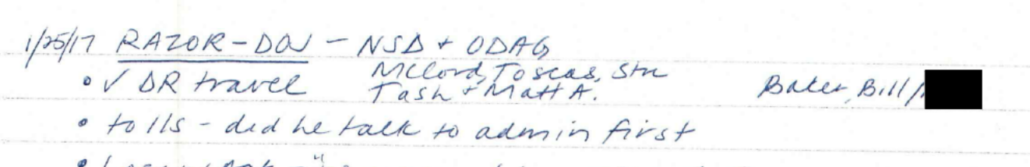 1/25/17 RAZOR-DOJ - NSD + ODAG
• ✓ DR travel McCord, Toscas, Stu Baker, Bill/
Tash + Matt A.
• tolls - did he talk to admin first